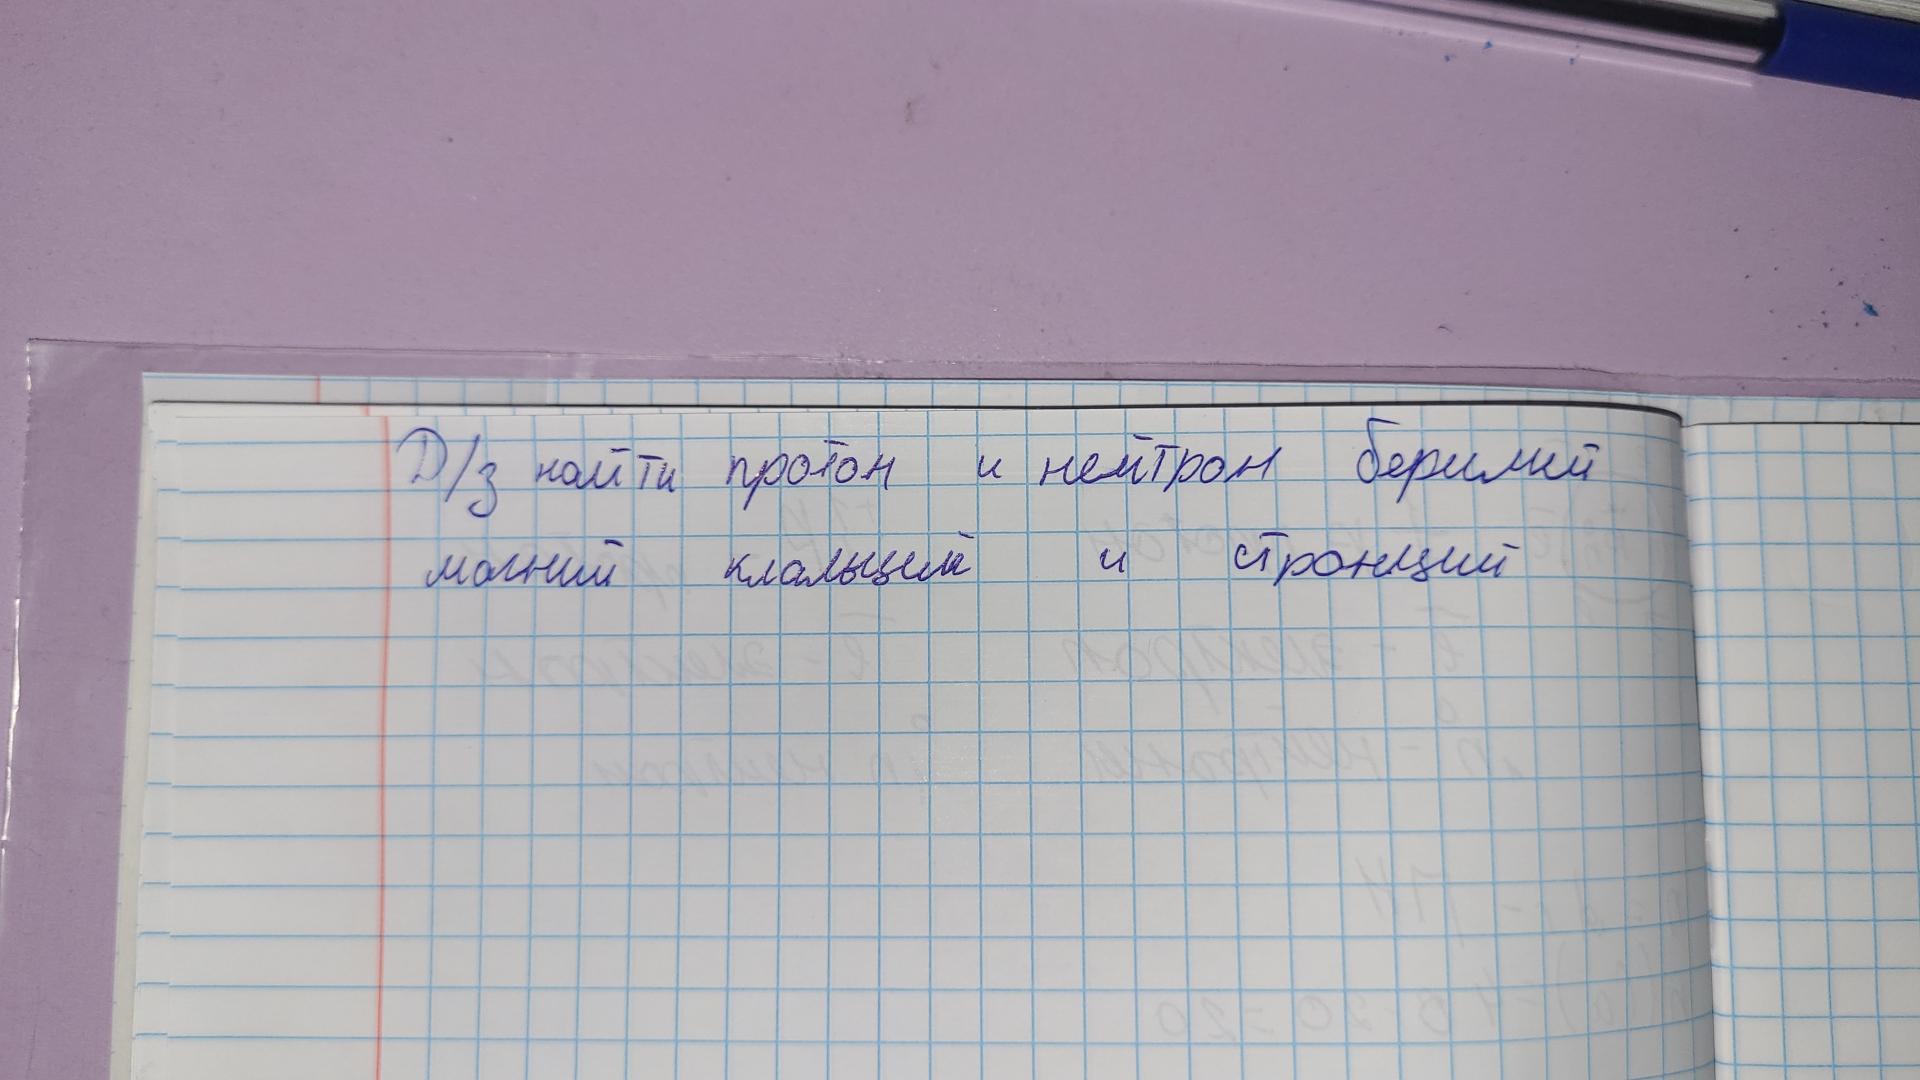 Д/з найти протон и нейтрон берилий
магний клальций и стронций